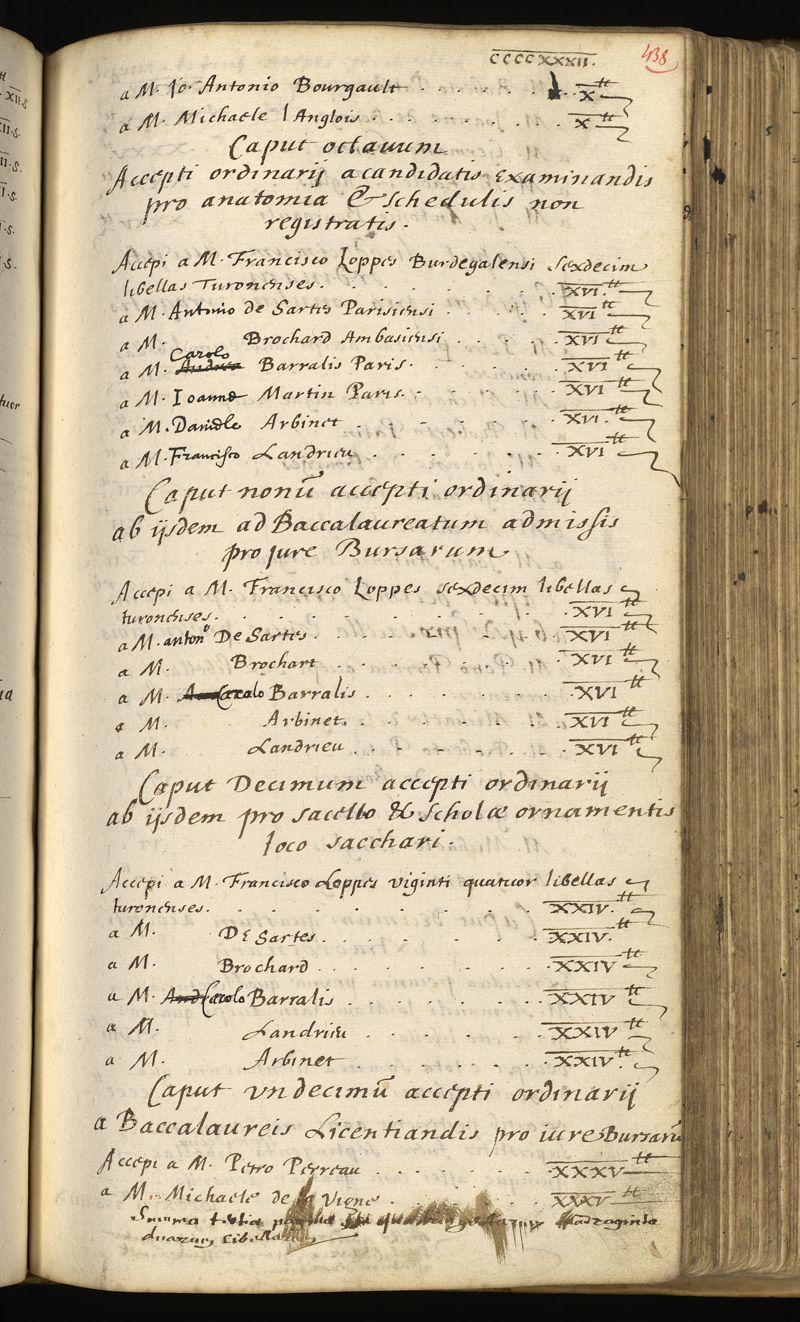 CCCCXXXII.
438
a M. Jo. Antonio Bourgault . . . . . . . X ℔
a M. Michaele l Anglois . . . . . . . . X ℔
Caput octauum
Accepti ordinarij a candidatis Examinandis
pro anatomia & Schedulis non
registratis.
Accepi a M. Francisco Loppes Burdegalensi sexdecim
libellas Turonenses. . . . . . . . XVI ℔
a M. Antonio de Sartes Parisiensi . . . . XVI ℔
a M. Brochard Ambasiensi . . . . XVI ℔
Carolo
a M. Andrea Barralis Paris. . . . . . XVI ℔
a M. Ioanne Martin Paris. . . . . . XVI ℔
a M. Daniele Arbinet . . . . . . . XVI. ℔
a M. Francisco Landrieu . . . . . . XVI ℔
Caput nonū accepti ordinarij
ab ijsdem ad Baccalaureatum admissis
pro jure Bursarum
Accepi a M. Francisco Loppes sexdecim libellas
turonenses. . . . . . . . . . XVI ℔
a M. anton° De Sartes. . . . . . . XVI ℔
a M. Brochart . . . . . . . XVI ℔
a M. And Carolo Barralis . . . . . . XVI ℔
a M. Arbinet. . . . . . . XVI ℔
a M. Landrieu . . . . . . . XVI ℔
Caput Decimum accepti ordinarij
ab ijsdem pro sacello & Scholæ ornamentis
loco sacchari.
Accepi a M. Francisco Loppes viginti quatuor libellas
turonenses. . . . . . . . . XXIV ℔
a M. De Sartes. . . . . . . XXIV. ℔
a M. Brochard . . . . . . . XXIV ℔
a M. And Carolo Barralis . . . . . . XXIV ℔
a M. Landrieu . . . . . . XXIV ℔
a M. Arbinet . . . . . . XXIV. ℔
Caput vndecimū accepti ordinarij
a Baccalaureis Licentiandis pro iure Bursarū
Accepi a M. Petro Perreau . . . . . XXXV ℔
a M. Michaele de la Vigne . . . . . XXXV ℔
Summa tertiæ paginæ quadraginta
duarum libella